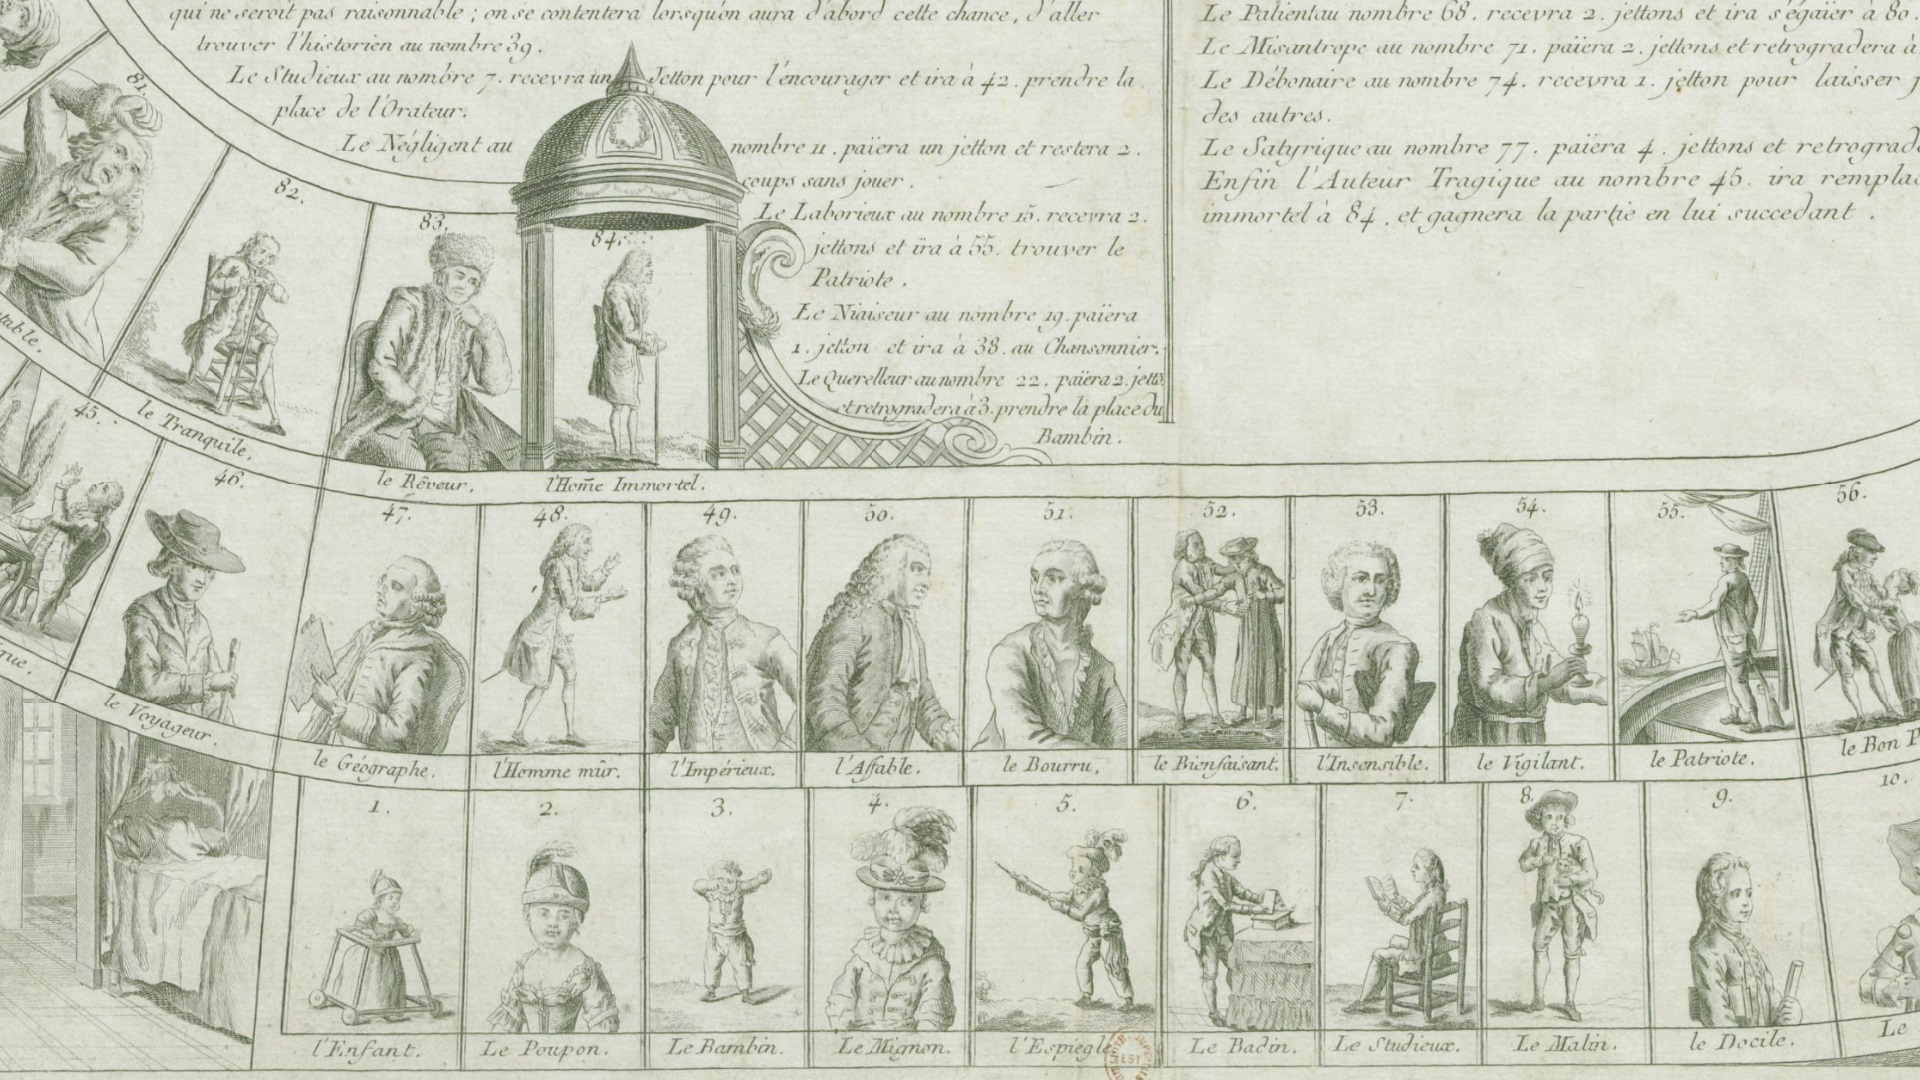 qui ne seroit pas raisonnable ; on se contentera lorsqu'on aura d'abord cette chance, d'aller
trouver l'historien au nombre 39.
Le Studieux au nombre 7. recevra un Jetton pour l'encourager et ira à 42. prendre la
place de l'Orateur.
Le Négligent au nombre 11. païera un jetton et restera 2.
coups sans jouer.
Le Laborieux au nombre 15. recevra 2.
jettons et ira à 55. trouver le
Patriote.
Le Niaiseur au nombre 19. païera
1. jetton et ira à 38. au Chansonnier.
Le Querelleur au nombre 22. païera 2. jettõ.
et retrogradera à 3. prendre la place du
Bambin.
Le Patient au nombre 68. recevra 2. jettons et ira s'égaïer à 80.
Le Misantrope au nombre 71. païera 2. jettons et retrogradera à
Le Débonaire au nombre 74. recevra 1. jetton pour laisser
des autres.
Le Satyrique au nombre 77. païera 4. jettons et
Enfin l'Auteur Tragique au nombre 45. ira
immortel à 84. et gagnera la partie en lui succedant.
81.
82.
83.
84.
le Tranquile.
le Rêveur.
l'Hom̃e Immortel.
45.
46.
47.
48.
49.
50.
51.
52.
53.
54.
55.
56.
le Voyageur.
le Géographe.
l'Homme mûr.
l'Impérieux.
l'Affable.
le Bourru.
le Bienfaisant.
l'Insensible.
le Vigilant.
le Patriote.
le Bon
1.
2.
3.
4.
5.
6.
7.
8.
9.
10.
l'Enfant.
Le Poupon.
Le Bambin.
Le Mignon.
l'Espiegle
Le Badin.
Le Studieux.
Le Malin.
le Docile.
Le